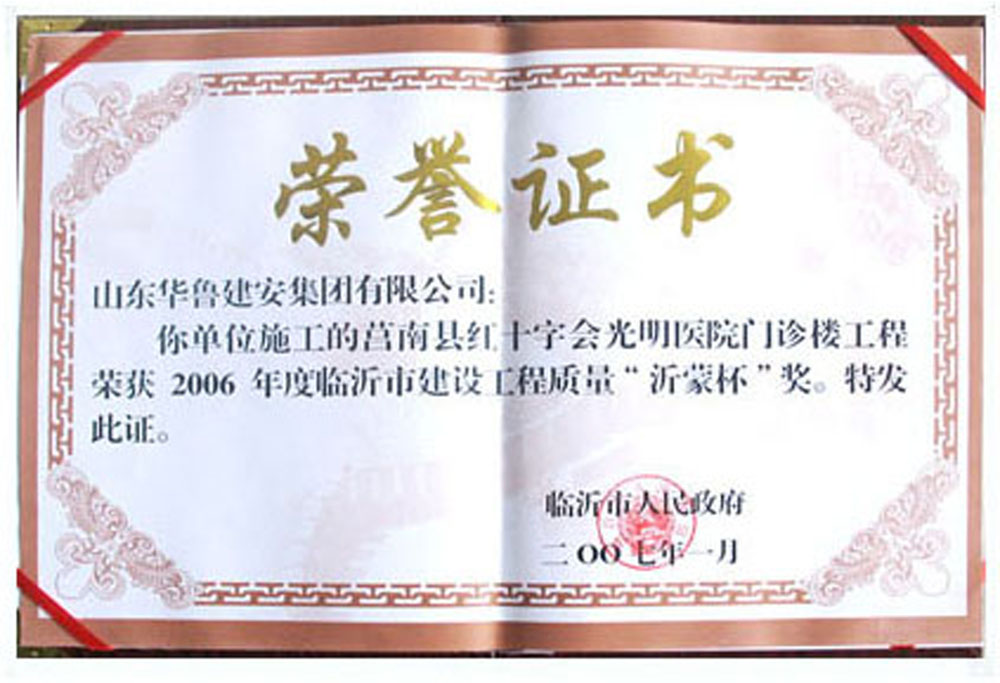 荣誉证书
山东华鲁建安集团有限公司：
你单位施工的莒南县红十字会光明医院门诊楼工程
荣获 2006 年度临沂市建设工程质量“沂蒙杯”奖。特发
此证。
临沂市人民政府
二OO七年一月